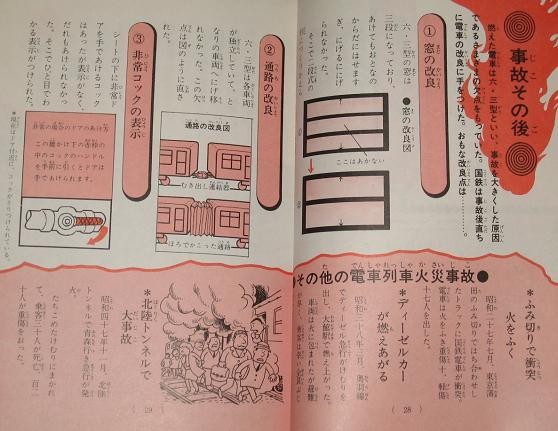 事故その後
燃えた電車は六・三型といい、事故を大きくした原因
であるさまざまの欠点をもっていた。国鉄は事故後直ち
に電車の改良に手をつけた。おもな改良点は……。
① 窓の改良
六・三型の窓は
三段になっており、
あけてもおとなの
からだにはせます
ぎ、にげるににげ
そこで二段式の
●窓の改良図
ここはあかない
② 通路の改良
六・三型は各車両
が独立していて、と
なりの車両へにげ移
れなかった。この欠
点は図のように直さ
れた。
通路の改良図
むき出し連結器
ほろでかこった通路
③ 非常コックの表示
シートの下に非常ド
アを手であけるコック
はあったが表示がなく、
だれもあけられなかっ
た。そこでひと目でわ
かる表示がつけられた。
非常の場合のドアのあけ方
この腰かけ下の赤枠の
中のコックのハンドル
を手前に引くとドアは
手であけられます。
＊現在はドア付近に、コックがとりつけられている。
●その他の電車列車火災事故●
＊ふみ切りで衝突
火をふく
昭和二十七年七月、東京蒲
田のふみ切りではち合わせし
たトラックに国鉄電車が衝突。
電車は火をふき重傷十、軽傷
十七人を出した。
＊ディーゼルカー
が燃えあがる
昭和二十八年三月、奥羽線
でディーゼル急行がけむりを
出し、大館駅で燃え上がった。
車両は火に包まれたが避難
＊北陸トンネルで
大事故
昭和四十七年十一月、北陸
トンネルで青森行き急行が発
火。
たちこめたけむりにまかれ
て、乗客三十人が死亡、百二
十人が重傷をおった。
( 28 )
( 29 )